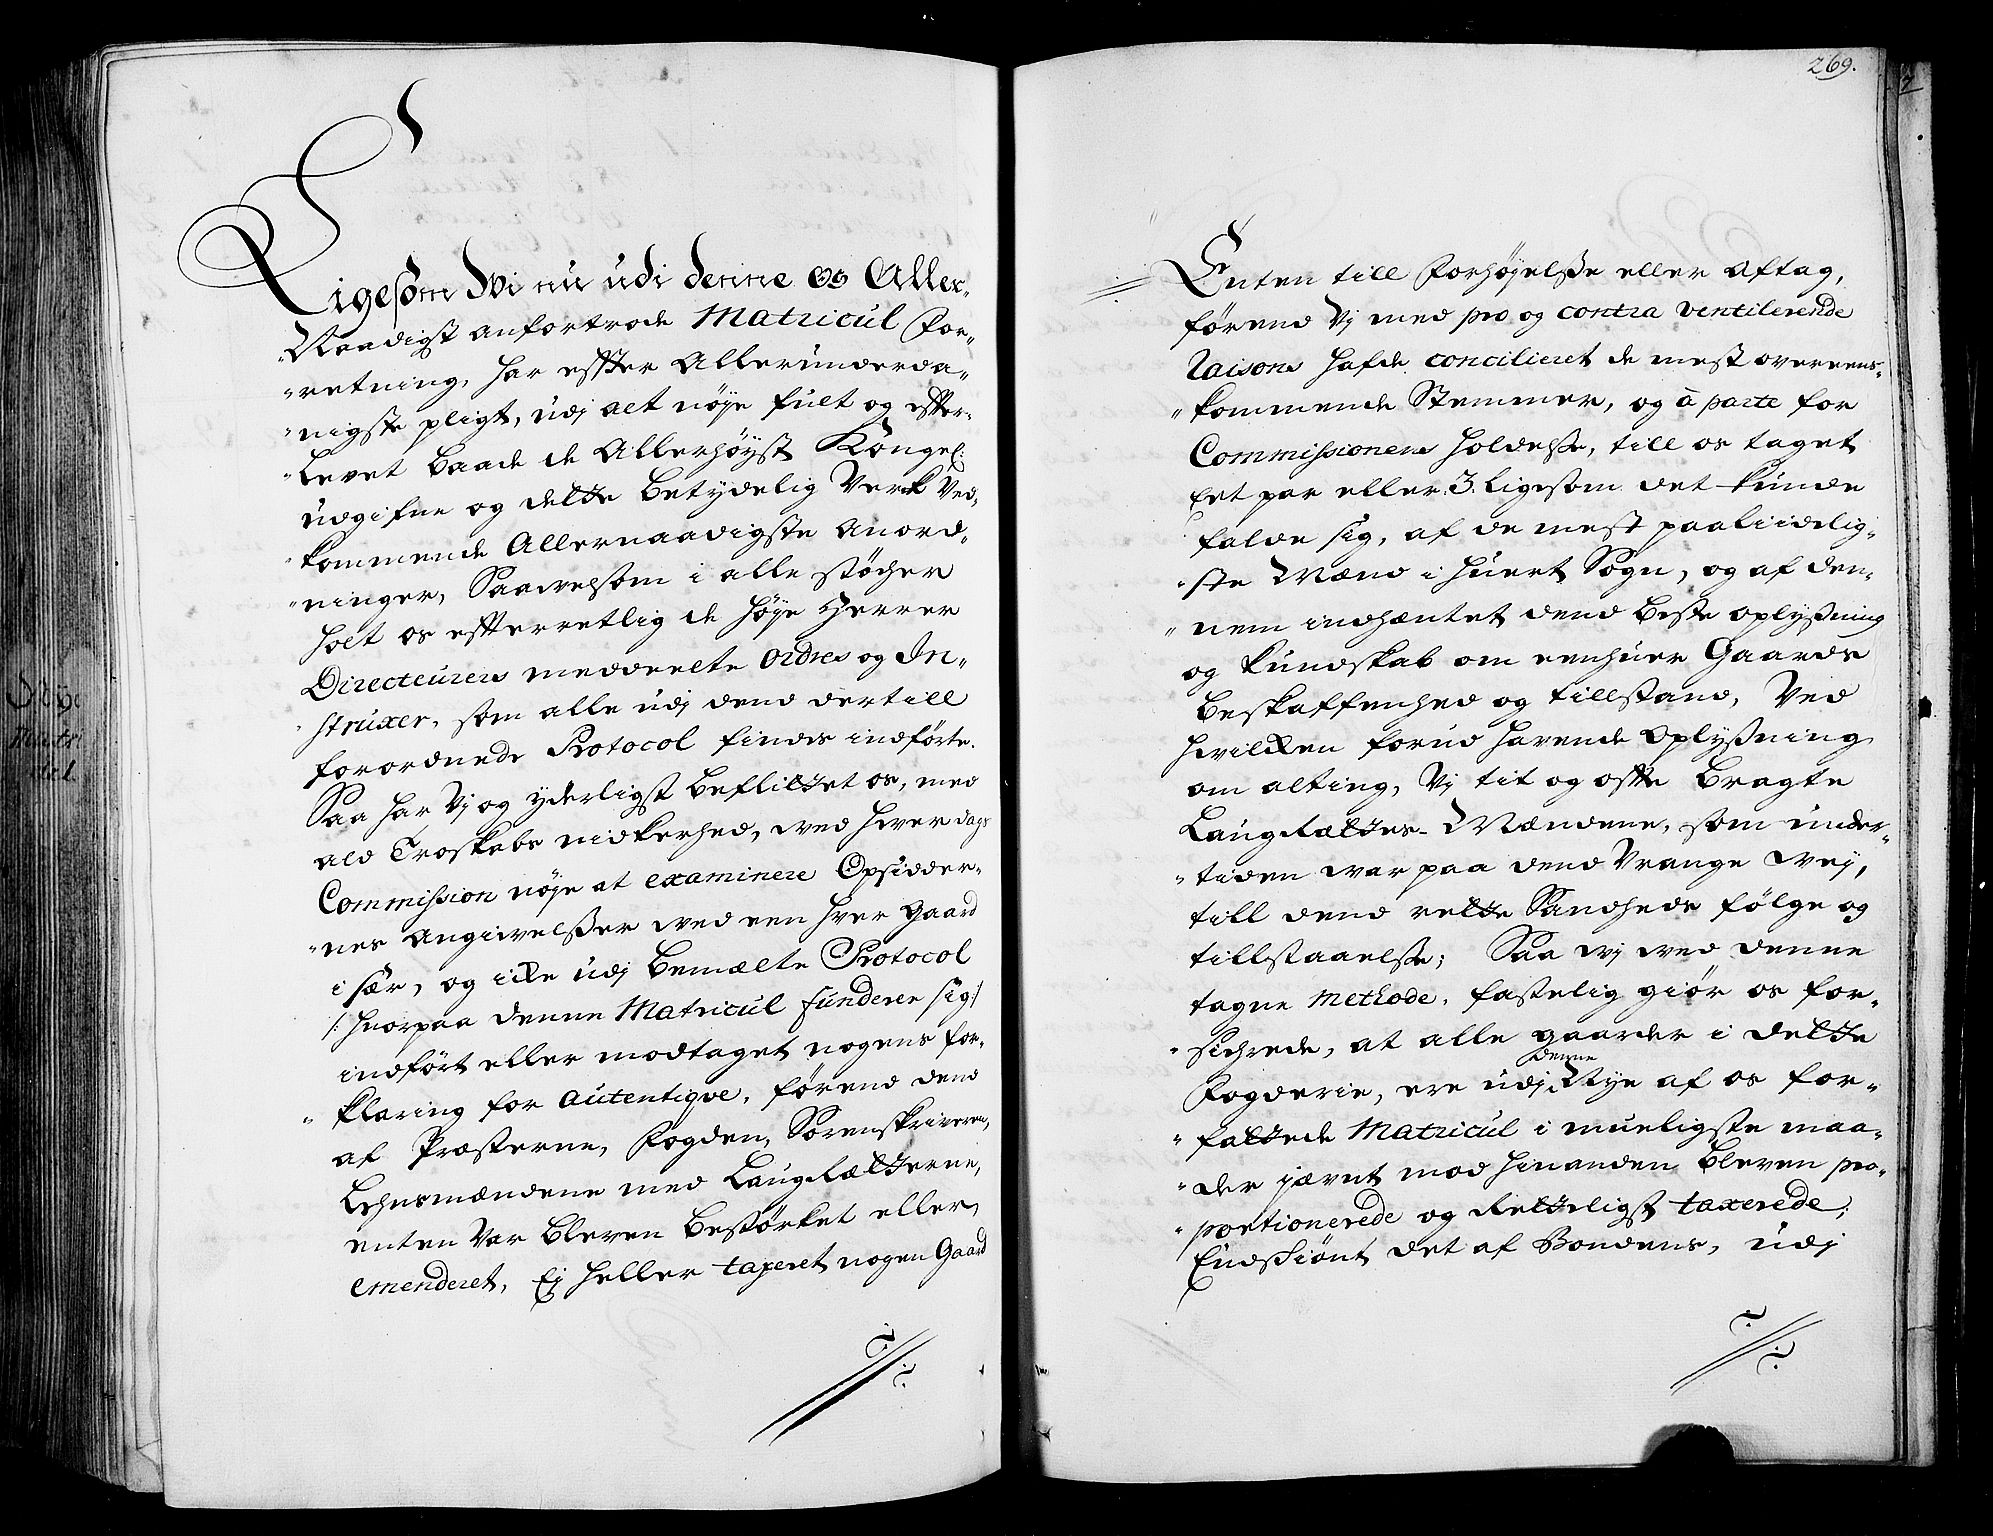 Ligesom Wi nu udi denne os Aller-
"Naadigst anfortrode Matricul For-
"retning, har effter Allerunderda-
"nigste pligt, udj alt nøye fult og effter-
"levet baade de Allerhøyst Kongel:
udgifne og dette betydelig Verck Ved-
"kommende Allernaadigste Anord-
"ninger, Saavelsom i alle støcher
holt os effterretlig de høye Herrer
Directeurers meddeelte Ordres og In-
"struxer, som alle udj dend dertill
forordnede Protocol findes indførte.
Saa har Vj og yderligst beflittet os, med
ald Troskabs nidkerhed, ved hver dags
Commission nøye at examinere Opsidder-
"nes Angivelsser ved een hver Gaard
i sær, og icke udj bemælte Protocol
/: hvorpaa denne Matricul funderer sig:/
indført eller modtaget nogens for-
"klaring for autentiqve, førend dend
af Præsterne, Fogden, Sorenskriveren,
Lehnsmændene med Laugrætterne,
enten var bleven bestørket eller
emenderet, Ej heller taxeret nogen Gaard
269.
Enten till Forhøyelsse eller Aftag,
førend Vj med pro og contra ventilerende
Raisons hafde concilieret de mest overeens-
"kommende Stemmer, og à parte for
Commissionens holdelsse, till os taget
Eet par eller 3. ligesom det kunde
falde sig, af de mest paaliidelig-
"ste Mænd i huert Sogn, og af den-
"nem indhæntet dend beste oplysning
og kundskab om eenhuer Gaards
beskaffenhed og tillstand, Ved
hvilcken forud havende Oplysning
om alting, Vj tit og offte bragte
Laugrættes-Mændene, som under-
"tiden var paa dend Vrange Vej,
till dend rette Sandheds følge og
tillstaaelsse; Saa vj ved denne
tagne Methode, fastelig giør os for-
"sichrede, at alle gaarder i dette
Fogderie, ere udj denne Nye af os for-
"fattede Matricul i mueligste maa-
"der jævnt mod hinanden bleven pro-
"portionerede og Retteligst taxerede;
Endskiønt det af Bondens, udj